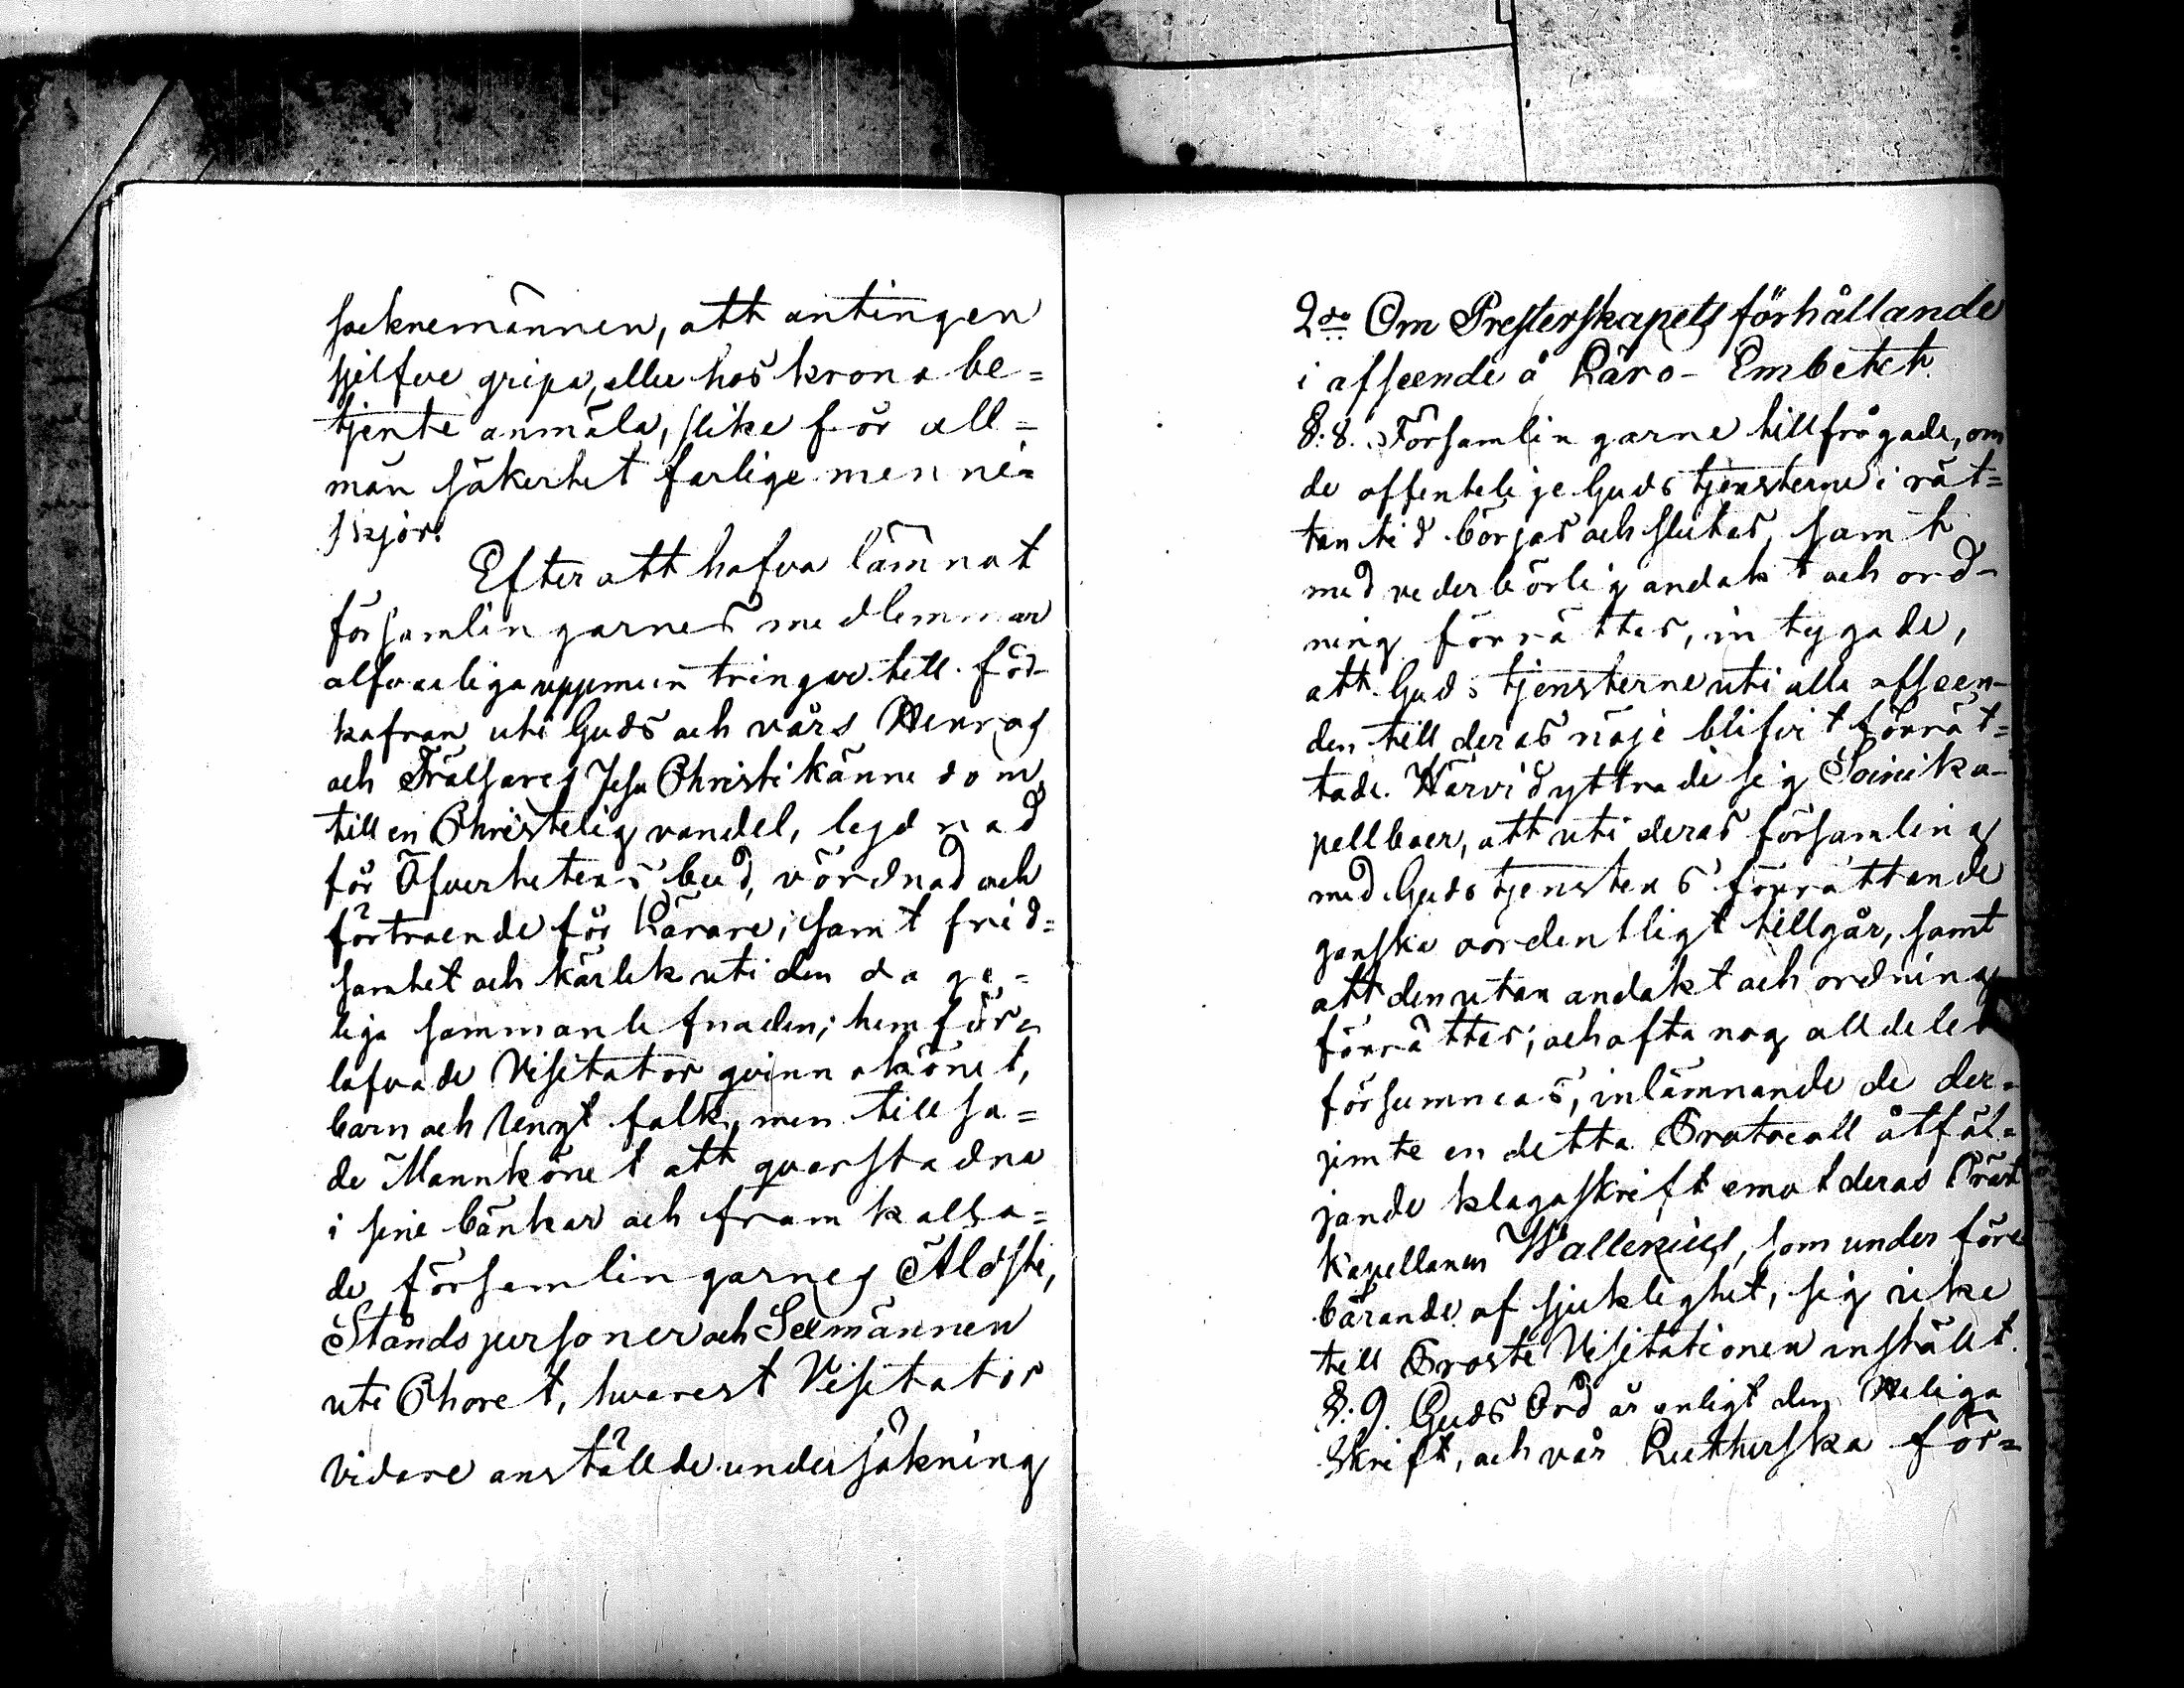 socknemännen, att antingen
sjelfve gripa, eller hos krono be=
tjente anmäla, slike för all=
män säkerhet farlige menni=
skjor.
Efter att hafva lämnat
församlingarnes medlemmar
alfvarliga uppmuntringar till för-
kofran uti Guds och vårs Herras
och Frälsares Jesu Christi kännedom,
till en Christelig vandel, lydnad
för Öfverhetens bud, vördnad och
förtroende för Lärare; samt frid=
samhet och kärlek uti den dage=
liga sammanlefnaden; hemför=
lofvade Visitator qvinnokönet,
barn och Ungt folk, men tillsa=
de Mannkönet att qvarstadna
i sine bänkar och framkalla=
de församlingarnes Äldste,
Ståndspersoner och Sexmännen
uti Choret, hvarest Visitator
vidare anställde undersökning
2do Om Presterskapets förhållande
i afseende å Läro-Embetet.
§. 8. Församlingarne tillfrågade, om
de offentelige Gudstjensterne i rät=
tan tid börjas och slutas, samt
med vederbörlig andakt och ord-
ning förrättes, intygade,
att Gudstjensterne uti alla afseen-
den till deras nöje blifvit förrät=
tade. Härvid yttrade sig Soini ka-
pellboer, att uti deras församling
med Gudstjenstens förrättande
ganska oordentligt tillgår, samt
att den utan andakt och ordning
förrättes; och ofta nog alldeles
försummas, inlämnande de der=
jemte en detta Protocoll åtföl=
jande klagoskrift emot deras Präst
Kapellanen Wallenius, som under före
bärande af sjuklighet, sig icke
till Prosti Visitationen inställt.
§. 9. Guds Ord är enligt den Heliga
Skrift, och vår Lutherska för=